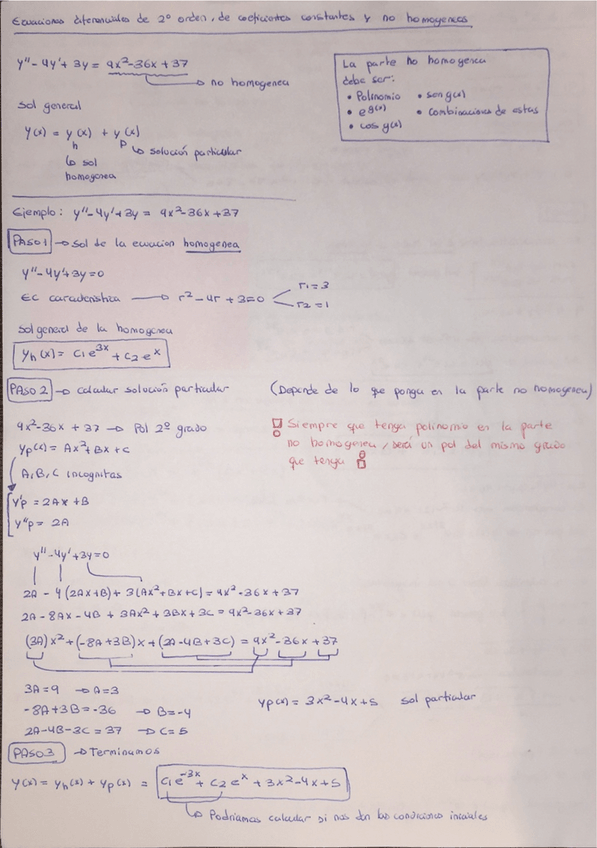 Ecuaciones diferenciales de 2º orden, de coeficientes constantes y no homogeneas
y'' - 4y' + 3y = 9x² - 36x + 37
no homogenea
La parte no homogenea
debe ser:
• Polinomio • sen g(x)
• e^g(x) • combinaciones de estas
• cos g(x)
sol general
y(x) = y_h(x) + y_p(x)
↳ solución particular
↳ sol
homogenea
Ejemplo: y'' - 4y' + 3y = 9x² - 36x + 37
PASO 1 → sol de la ecuacion homogenea
y'' - 4y' + 3y = 0
EC caracteristica → r² - 4r + 3 = 0
r₁ = 3
r₂ = 1
sol general de la homogenea
y_h(x) = C₁e^3x + C₂e^x
PASO 2 → calcular solución particular (Depende de lo que ponga en la parte no homogenea)
9x² - 36x + 37 → Pol 2º grado
Siempre que tenga polinomio en la parte
no homogenea, será un pol del mismo grado
que tenga
y_p(x) = Ax² + Bx + C
A, B, C incognitas
y'p = 2Ax + B
y''p = 2A
y'' - 4y' + 3y = 0
2A - 4(2Ax + B) + 3(Ax² + Bx + C) = 9x² - 36x + 37
2A - 8Ax - 4B + 3Ax² + 3Bx + 3C = 9x² - 36x + 37
(3A)x² + (-8A + 3B)x + (2A - 4B + 3C) = 9x² - 36x + 37
3A = 9 → A = 3
-8A + 3B = -36 → B = -4
yp(x) = 3x² - 4x + 5 sol particular
2A - 4B - 3C = 37 → C = 5
PASO 3 → Terminamos
y(x) = y_h(x) + y_p(x) = C₁e^-3x + C₂e^x + 3x² - 4x + 5
↳ Podriamos calcular si nos dan las condiciones iniciales